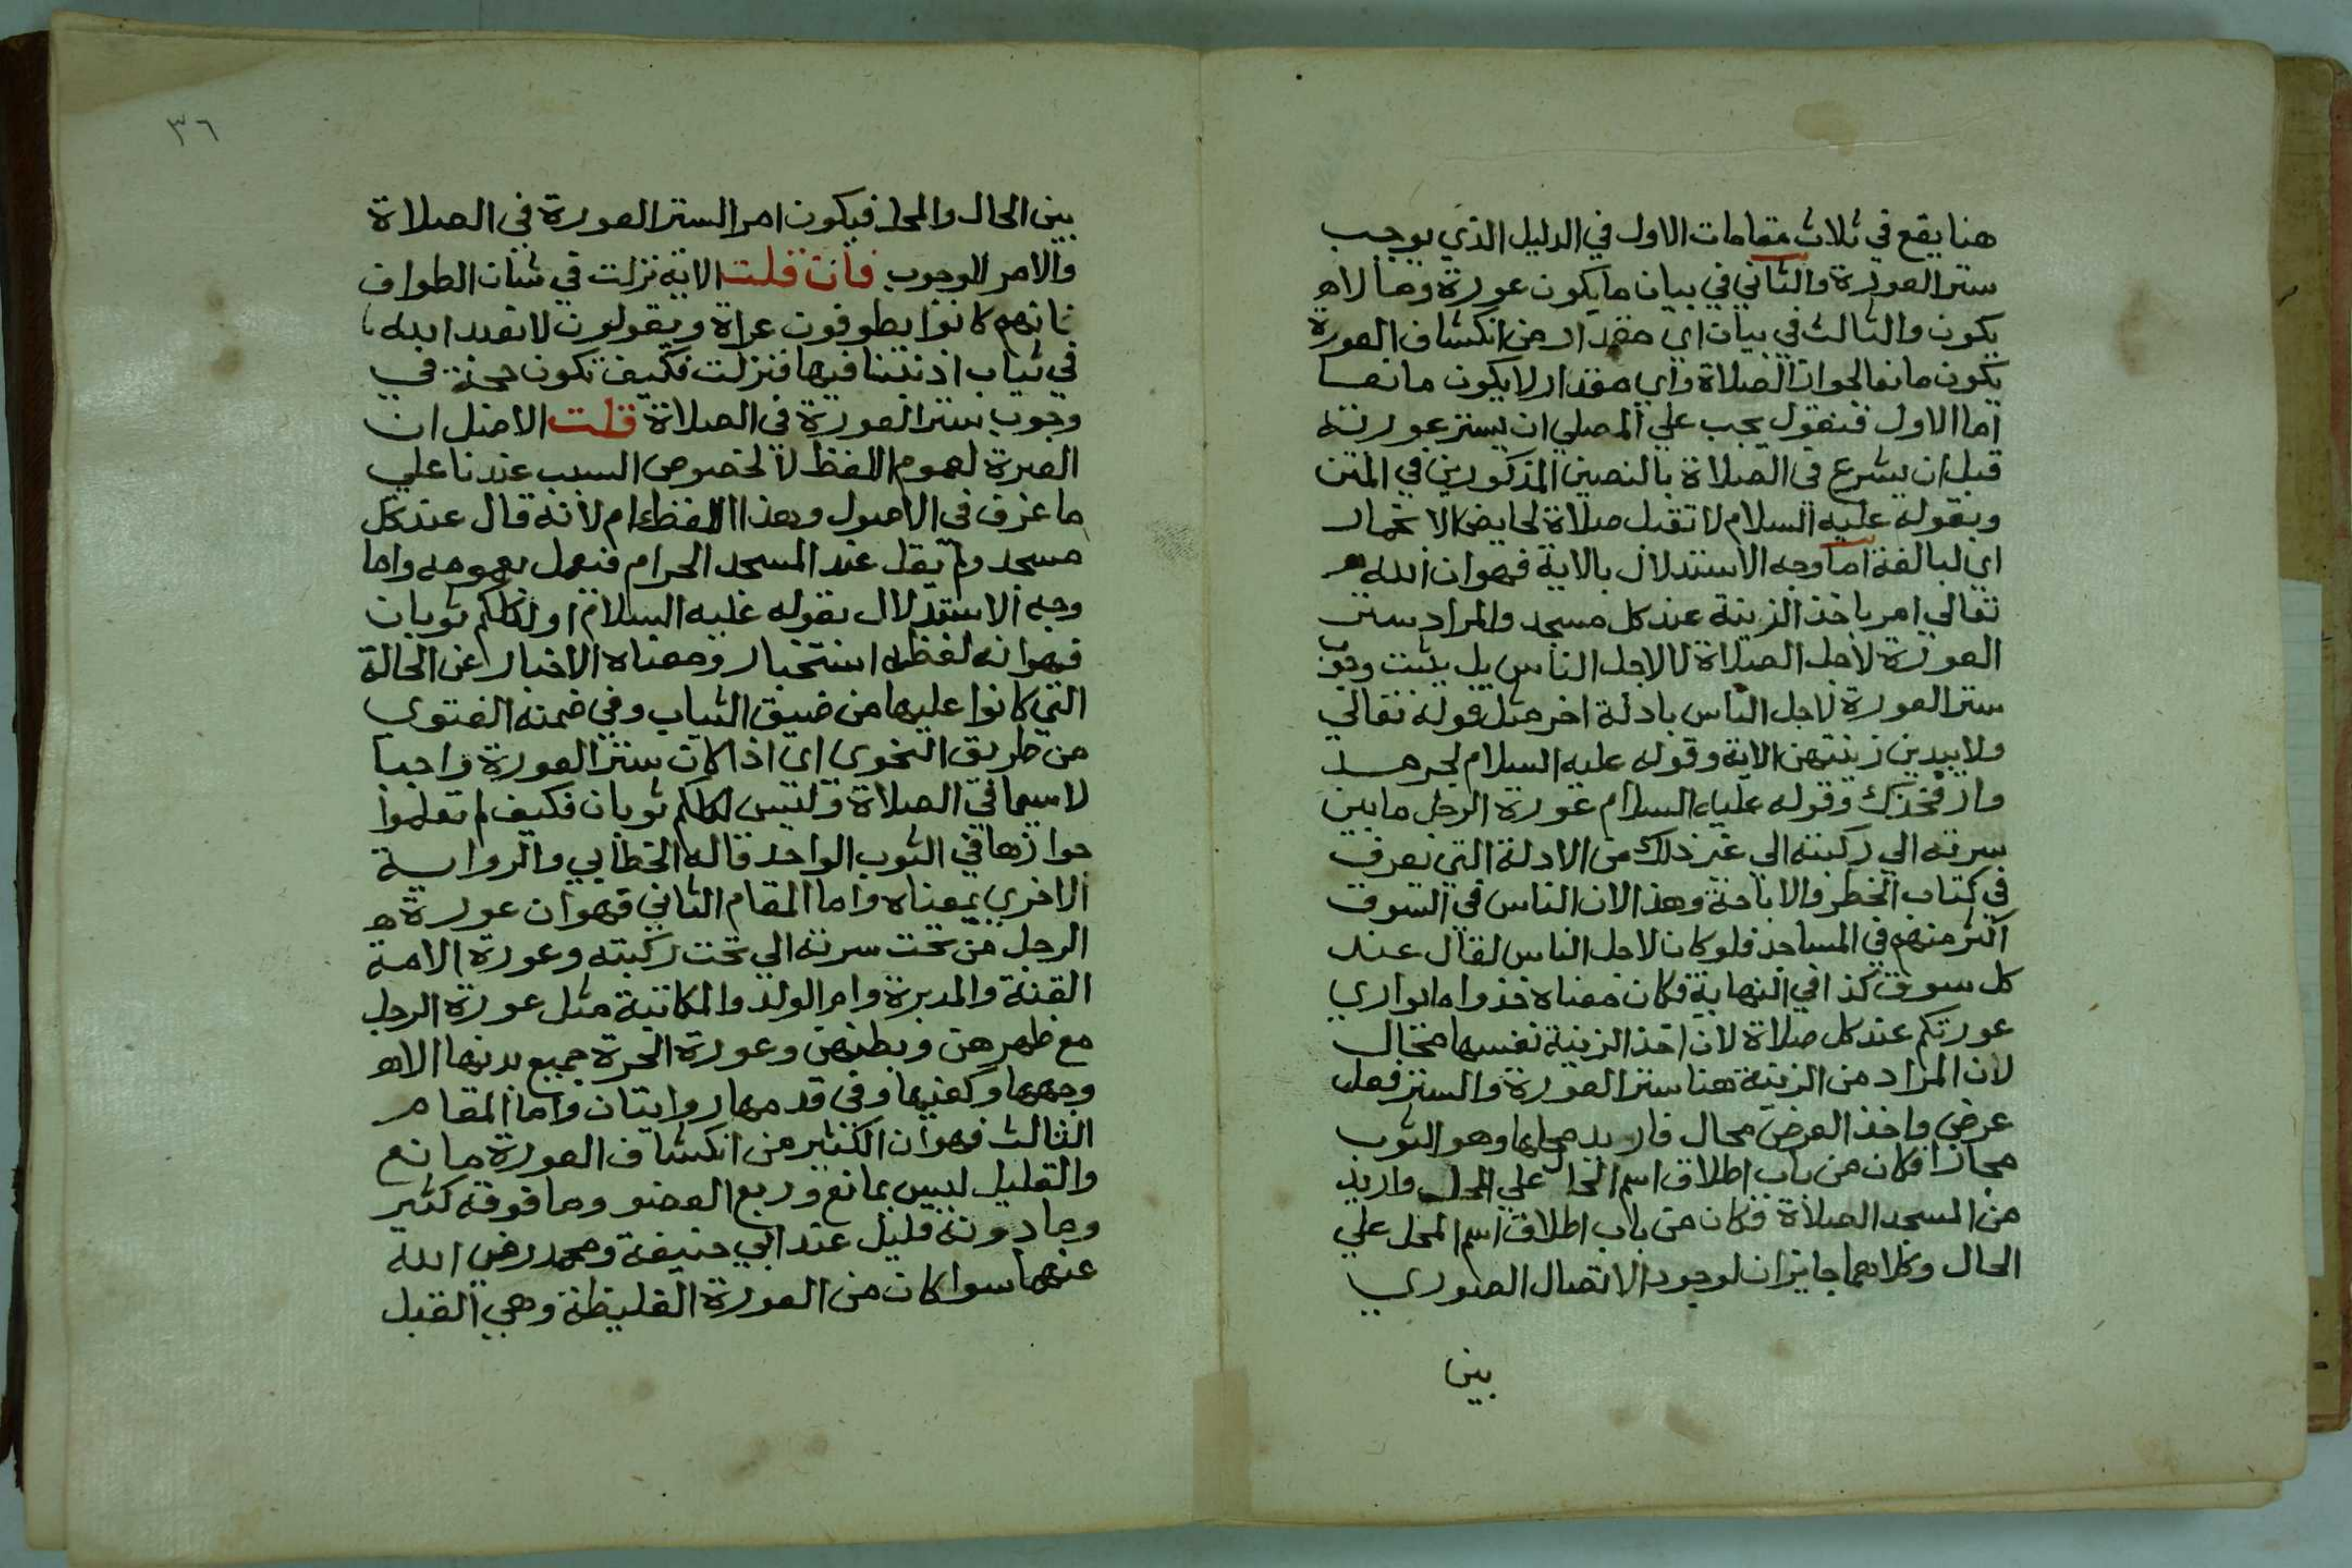 هنا يقع في ثلاث مقامات الاول في الدليل الذي يوجب
ستر العورة والثاني في بيان ما يكون عورة وما لا ه
يكون والثالث في بيان اي مقدار من انكشاف العورة
يكون مانعا لجواز الصلاة واي مقدار لا يكون مانعا
اما الاول فنقول يجب علي المصلي ان يستر عورته
قبل ان يشرع في الصلاة بالنصين المذكورين في المتن
وبقوله عليه السلام لا تقبل صلاة لحايض الا بخمار
اي لبالغة اما وجه الاستدلال بالاية فهو ان الله
تعالي امر باخذ الزينة عند كل مسجد والمراد ستر
العورة لاجل الصلاة لا لاجل الناس بل يثبت وجوب
ستر العورة لاجل الناس بادلة اخر مثل قوله تعالي
ولا يبدين زينتهن الاية وقوله عليه السلام لجرهد
وار فخذك وقوله عليه السلام عورة الرجل ما بين
سرته الي ركبته الي غير ذلك من الادلة التي تعرف
في كتاب الحظر والاباحة وهذا لان الناس في السوق
اكثر منهم في المساجد فلو كان لاجل الناس لقال عند
كل سوق كذا في النهاية فكان معناه خذوا ما يواري
عورتكم عند كل صلاة لان اخذ الزينة نفسها محال
لان المراد من الزينة هنا ستر العورة والستر فعل
عرض واخذ العرض محال فاريد محلها وهو الثوب
مجازا فكان من باب اطلاق اسم الحال علي المحل واريد
من المسجد الصلاة فكان من باب اطلاق اسم المحل علي
الحال وكلاهما جايزان لوجود الاتصال الصوري
بين
٣٦
بين الحال والمحل فيكون امرا لستر العورة في الصلاة
والامر للوجوب فان قلت الاية نزلت في شان الطواف
فانهم كانوا يطوفون عراة ويقولون لا نعبد الله
في ثياب اذنبنا فيها فنزلت فكيف تكون حجة في
وجوب ستر العورة في الصلاة قلت الاصل ان
العبرة لعموم اللفظ لا لخصوص السبب عندنا علي
ما عرف في الاصول وهذا اللفظ عام لانه قال عند كل
مسجد ولم يقل عند المسجد الحرام فنعمل بعمومه واما
وجه الاستدلال بقوله عليه السلام اولكلكم ثوبان
فهو انه لفظه استخبار ومعناه الاخبار عن الحالة
التي كانوا عليها من ضيق الثياب وفي ضمنه الفتوي
من طريق الفحوي اي اذا كان ستر العورة واجبا
لا سيما في الصلاة وليس لكلكم ثوبان فكيف لم تعلموا
جوازها في الثوب الواحد قاله الخطابي والرواية
الاخري بمعناه واما المقام الثاني فهو ان عورة ه
الرجل من تحت سرته الي تحت ركبته وعورة الامة
القنة والمدبرة وام الولد والمكاتبة مثل عورة الرجل
مع ظهرهن وبطنهن وعورة الحرة جميع بدنها الا ه
وجهها وكفيها وفي قدمها روايتان واما المقام
الثالث فهو ان الكثير من انكشاف العورة مانع
والقليل ليس بمانع وربع العضو وما فوقه كثير
وما دونه قليل عند ابي حنيفة ومحمد رضي الله
عنهما سوا كان من العورة الغليظة وهي القبل